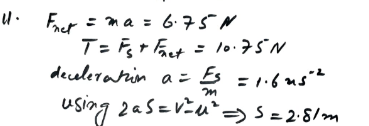 11. F_net = ma = 6.75 N
T = F_s + F_net = 10.75 N
deceleration a = F_s/m = 1.6 ms^-2
using 2aS = v²-u² ⇒ S = 2.81m